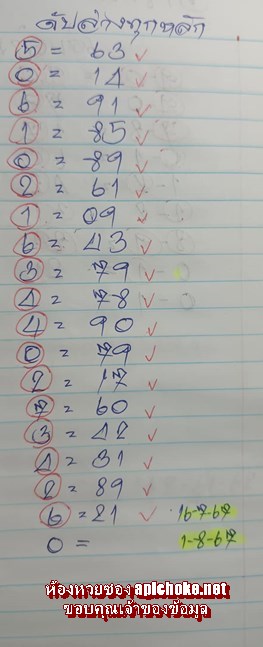 ดับล่างทุกหลัก
5 = 63 ✓
0 = 14 ✓
6 = 91 ✓
1 = 85 ✓
0 = 89 ✓
2 = 61 ✓
1 = 09 ✓
6 = 43 ✓
3 = 79 ✓
4 = 78 ✓
4 = 90 ✓
0 = 79 ✓
2 = 17 ✓
7 = 60 ✓
3 = 42 ✓
4 = 31 ✓
2 = 89 ✓
6 = 21 ✓ 16-7-67
0 = 1-8-67
ห้องหวยซอง apichoke.net
ขอบคุณเจ้าของข้อมูล